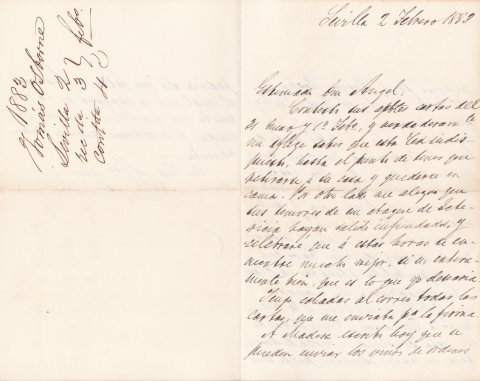 1883
Tomás Osborne
Sevilla 2 } febo.
recda 3
conta 4
Sevilla 2 Febrero 1883
Estimado Don Angel:
Contesto sus aptles cartas del
31 Enero y 1º Feb, y verdaderamte
me aflige saber que esta Ud indis-
puesto, hasta el punto de tener que
retirarse a su casa y quedarse en
cama. Por otro lado me alegro que
sus temores de un ataque de Icte-
ricia hayan salido infundados, y
celebraré que á estas horas se en-
cuentre mucho mejor, si no entera-
mente bien, que es lo que yo desearia.
Tengo echadas al correo todas las
cartas, que me enviaba pª la firma
A Madera escribo hoy que se
pueden enviar los vinos de ordenes